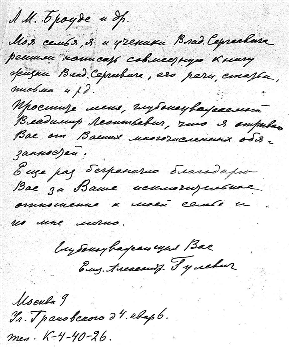 Л. М.Броуде и др.
Моя семья, я и ученики Влад. Сергеевича
решили написать совместную книгу
жизни Влад. Сергеевича, его речи, статьи,
письма и р.д.
Простите меня, глубокоуважаемый
Владимир Леонтьевич, что я отрываю
Вас от Ваших многочисленных обя-
занностей.
Еще раз безгранично благодарю
Вас за Ваше исключительное
отношение к моей семье и
ко мне лично.
Глубокоуважающая Вас
Елиз. Александр. Гулевич
Москва 9
Ул. Грановского д 4. квар 6.
тел. К-4-40-26.